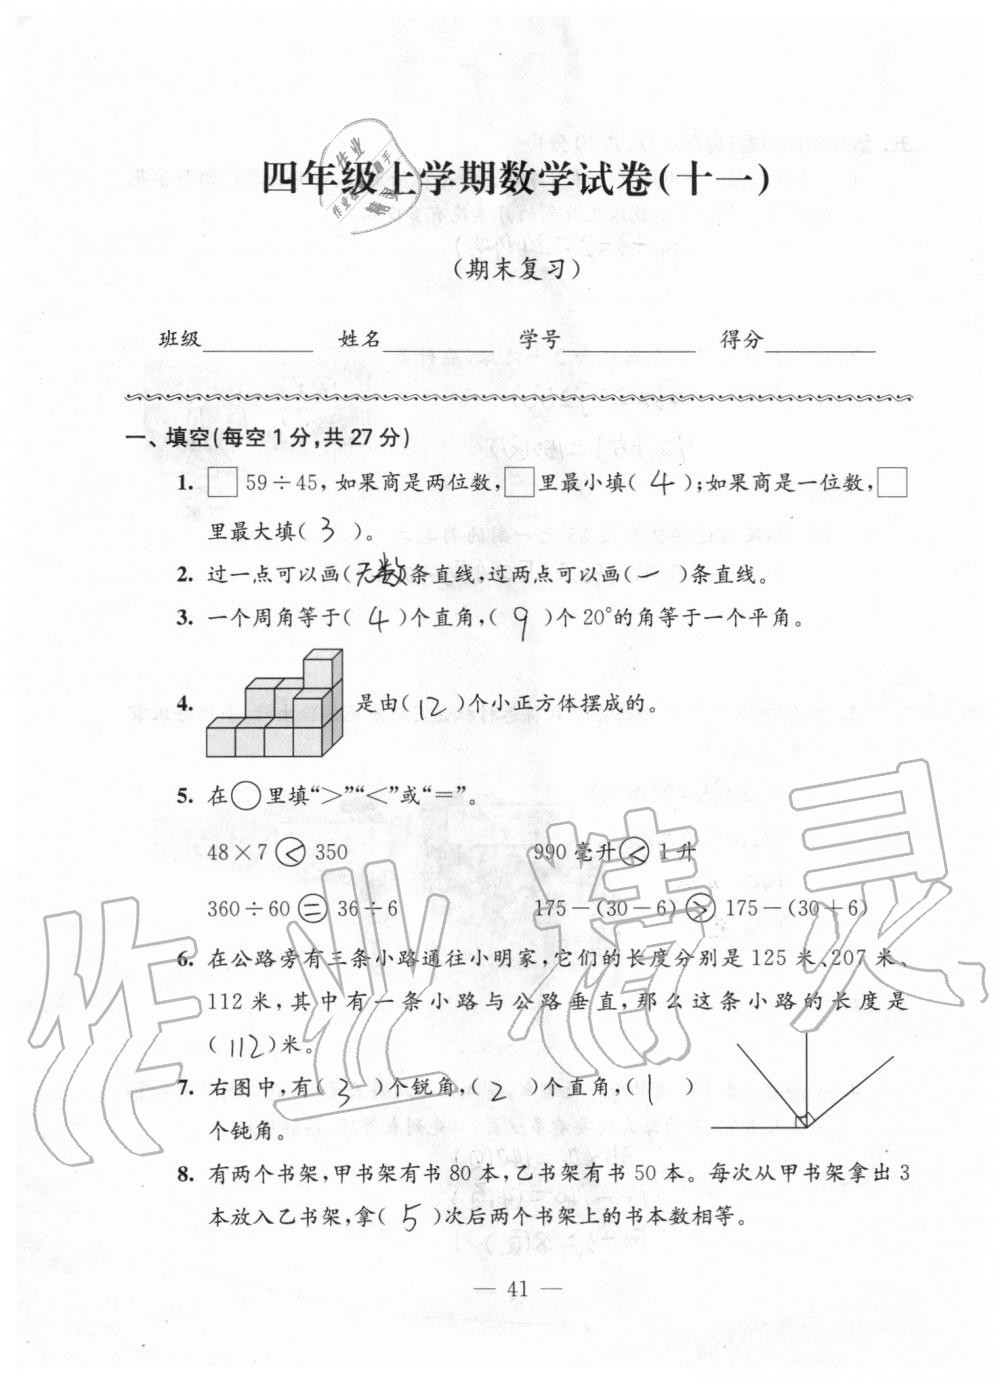 四年级上学期数学试卷(十一)
作业
作业检查小助手
精灵
(期末复习)
班级 姓名 学号 得分
一、填空(每空1分,共27分)
1. □59÷45,如果商是两位数,□里最小填( 4 );如果商是一位数,□
里最大填( 3 )。
2. 过一点可以画(无数)条直线,过两点可以画( 一 )条直线。
3. 一个周角等于( 4 )个直角,( 9 )个20°的角等于一个平角。
4. 是由( 12 )个小正方体摆成的。
5. 在○里填“>”“<”或“=”。
48×7 < 350 990毫升 < 1升
360÷60 = 36÷6 175-(30-6) > 175-(30+6)
6. 在公路旁有三条小路通往小明家,它们的长度分别是125米、207米、
112米,其中有一条小路与公路垂直,那么这条小路的长度是
( 112 )米。
7. 右图中,有( 3 )个锐角,( 2 )个直角,( 1 )
个钝角。
8. 有两个书架,甲书架有书80本,乙书架有书50本。每次从甲书架拿出3
本放入乙书架,拿( 5 )次后两个书架上的书本数相等。
— 41 —
作业精灵